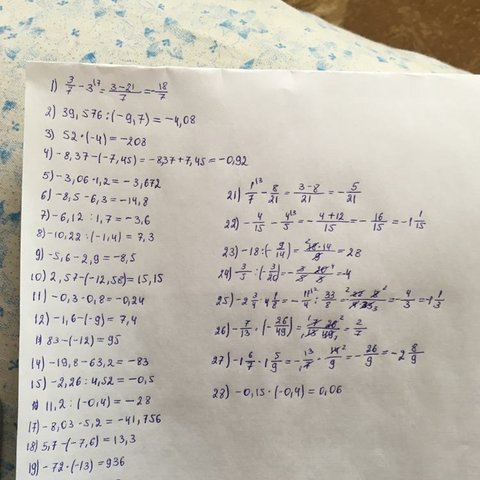 1) 3/7 - 3^17 = 3-21/7 = -18/7
2) 39,576 : (-9,7) = -4,08
3) 52 · (-4) = -208
4) -8,37 - (-7,45) = -8,37 + 7,45 = -0,92
5) -3,06 · 1,2 = -3,672
6) -8,5 - 6,3 = -14,8
7) -6,12 : 1,7 = -3,6
8) -10,22 : (-1,4) = 7,3
9) -5,6 - 2,9 = -8,5
10) 2,57 - (-12,58) = 15,15
11) -0,3 · 0,8 = -0,24
12) -1,6 - (-9) = 7,4
83 - (-12) = 95
14) -19,8 - 63,2 = -83
15) -2,26 : 4,52 = -0,5
11,2 : (-0,4) = -28
17) -8,03 · 5,2 = -41,756
18) 5,7 - (-7,6) = 13,3
19) -72 · (-13) = 936
21) 1/7^13 - 8/21 = 3-8/21 = -5/21
22) -4/15 - 4^13/5 = -4+12/15 = -16/15 = -1 1/15
23) -18 : (-9/14) = 18·14/9 = 28
24) 3/5 : (-3/20) = -3/5 20/3 = -4
25) -2 3/4 : 4 1/8 = -11/4 : 33/8 = = -4/3 = -1 1/3
26) -7/13 · (-26/49) = = 2/7
27) -1 6/7 · 1 5/9 = -13/7 · 14^2/9 = -26/9 = -2 8/9
28) -0,15 · (-0,4) = 0,06